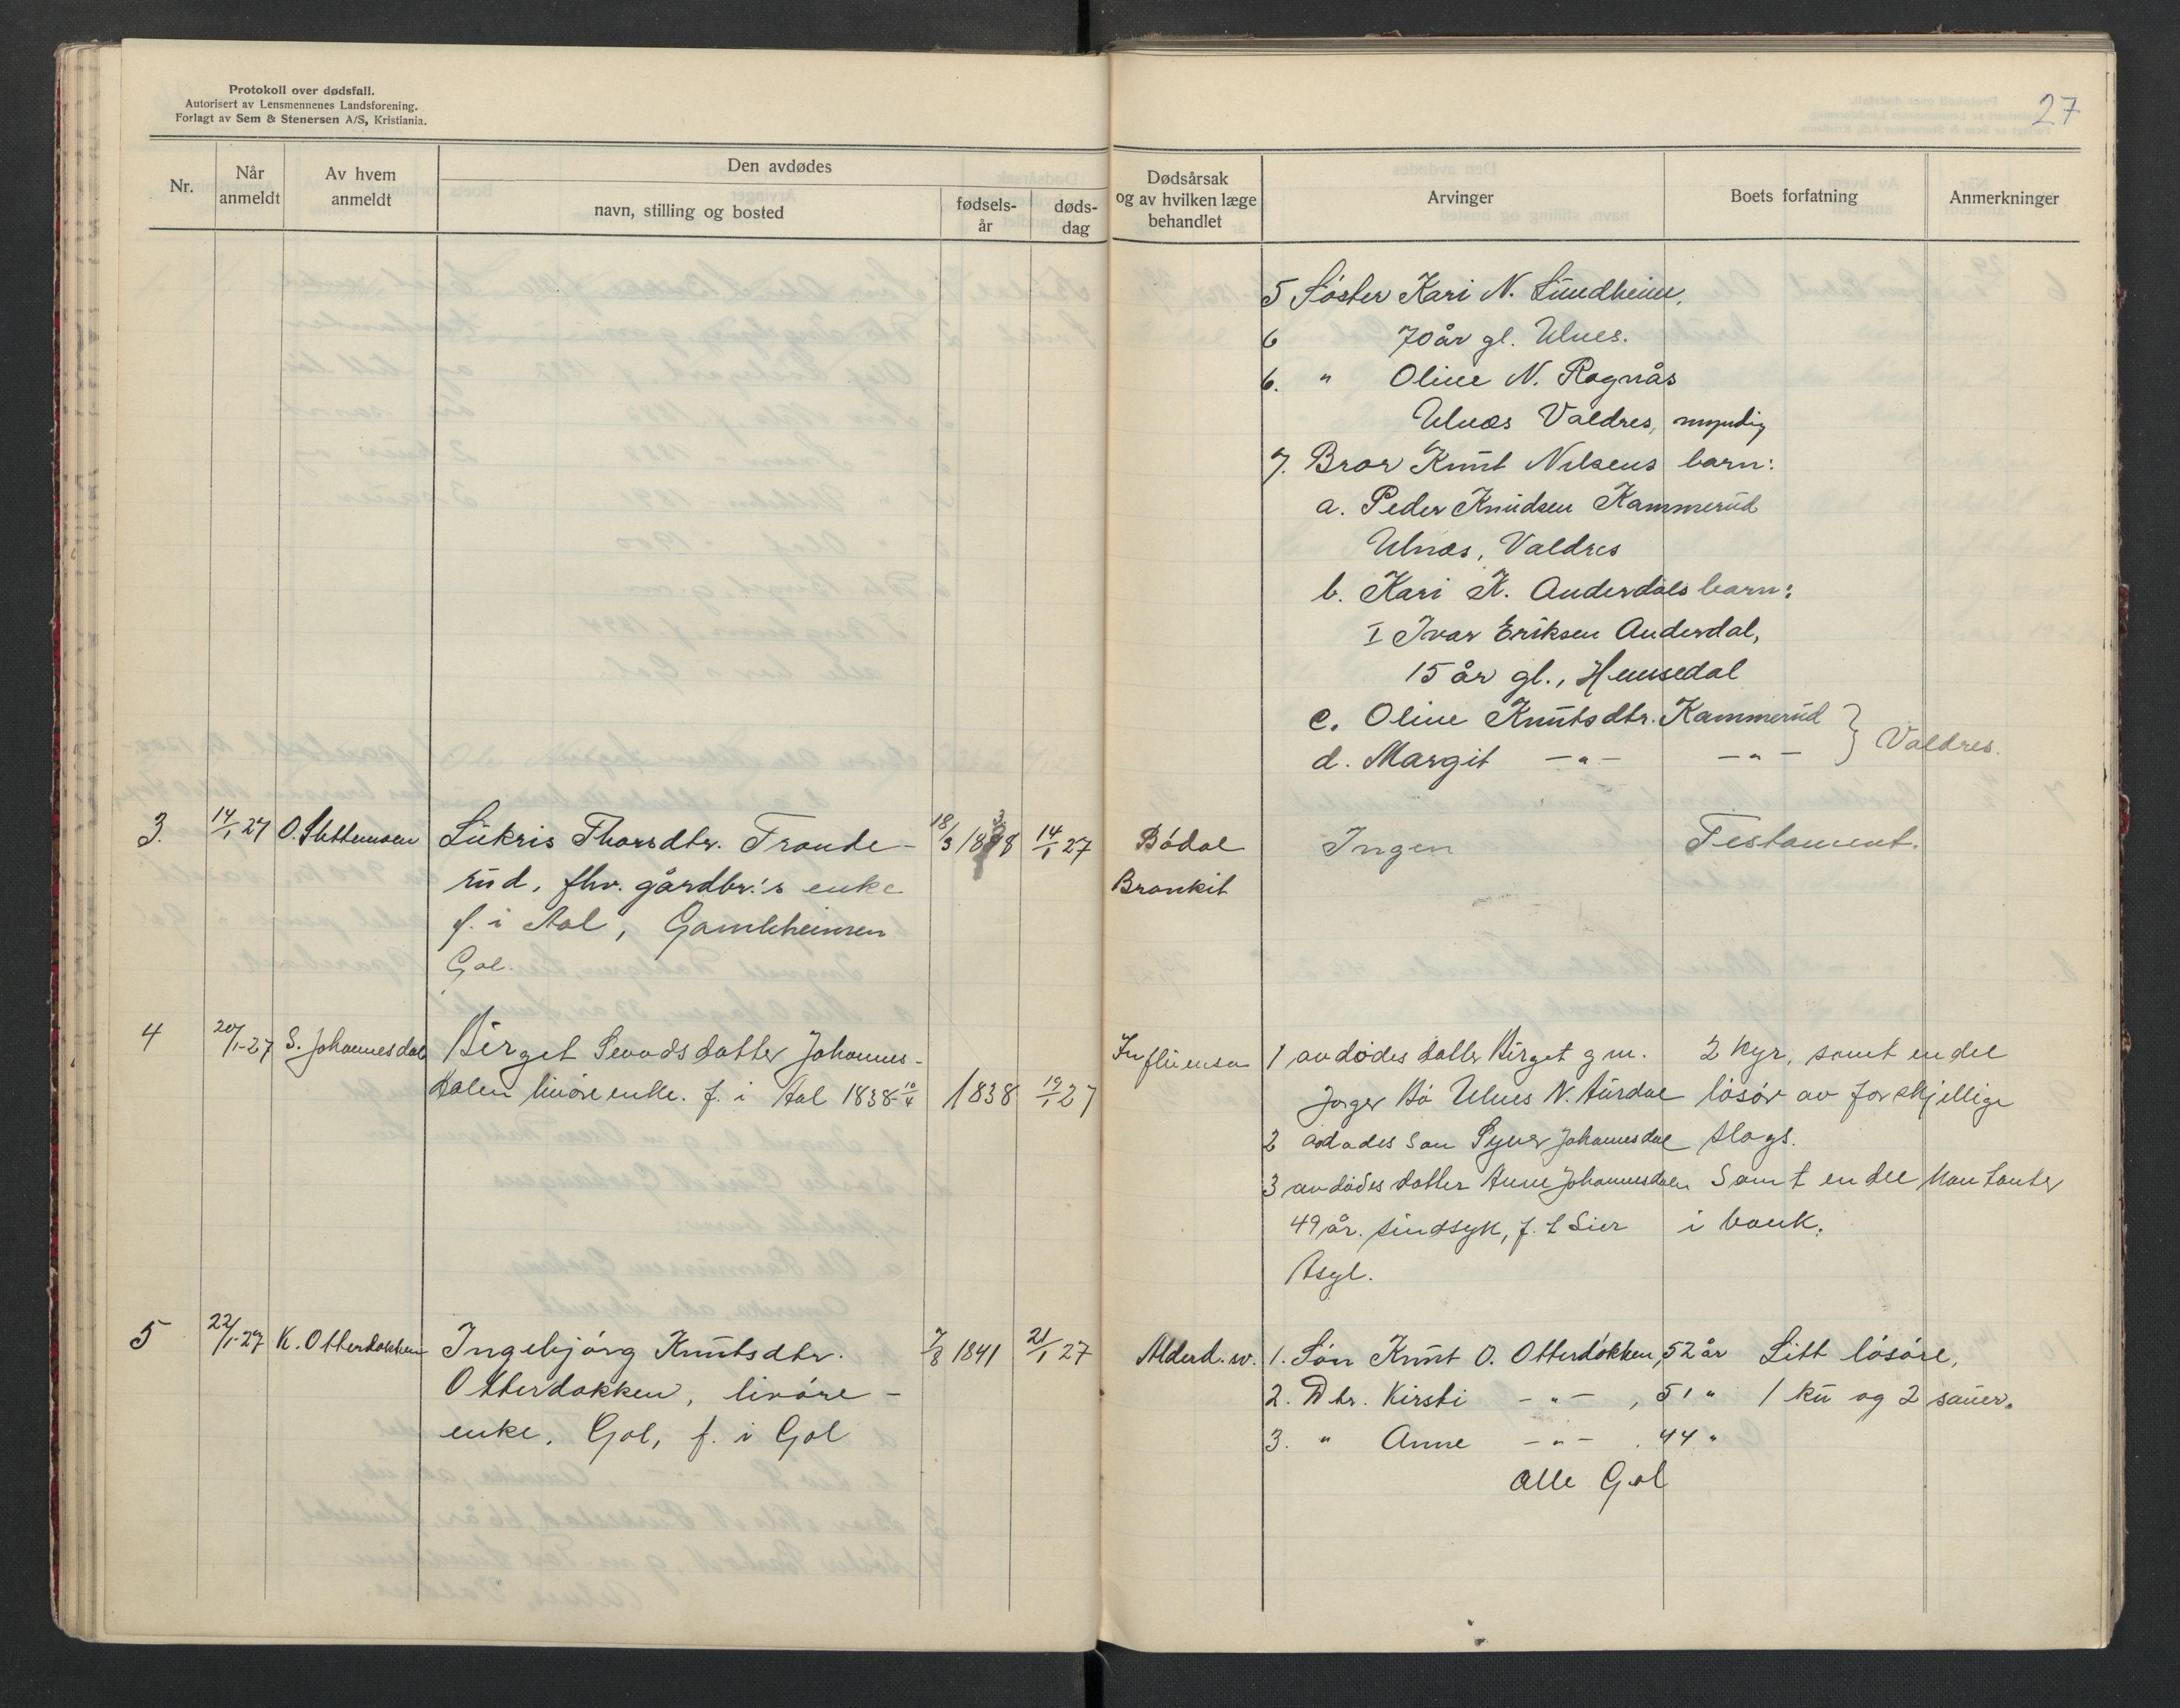 Protokoll over dødsfall.
Autorisert av Lensmennenes Landsforening.
Forlagt av Sem & Stenersen A/S, Kristiania.
27
Nr.
Når anmeldt
Av hvem anmeldt
Den avdødes
navn, stilling og bosted
fødsels-år
døds-dag
Dødsårsak og av hvilken læge behandlet
Arvinger
Boets forfatning
Anmerkninger
5 Søster Kari N. Sundheim,
6 70 år gl. Ulnes.
6. " Oline N. Rognås
Ulnæs Valdres, myndig
7. Bror Knut Nilsens barn:
a. Peder Knudsen Kammerud
Ulnæs, Valdres
b. Kari K. Anderdals barn:
I Ivar Eriksen Anderdal,
15 år gl., Hemsedal
c. Oline Knutsdtr. Kammerud
d. Margit -"- -"- } Valdres.
3. 14/1 27 O. Slettemoen Lükris Thorsdtr. Trøude- 18/3 1838 14/1 27 Bødal Ingen Testament.
rud, fhv. gårdbr.'s enke Bronkit
f. i Aal, Gamleheimen
Gol.
4 20/1-27 S. Johannesdal Birget Sevadsdatter Johannes- Influensa 1 avdødes datter Birget g m. 2 kyr, samt endel
dalen livøre enke. f. i Aal 1838 10/4 1838 19/1 27 Jørger Bø Ulnes N. Aurdal løsør av forskjellige
2 avdødes søn Syver Johannesdal slags.
3 avdødes datter Anne Johannesdalen Samt en del kontanter
49 år. sindsyk, f. t Lier i bank.
Asyl.
5 22/1-27 K. Otterdokken Ingebjørg Knutsdtr. 7/8 1841 21/1 27 Alderd. sv. 1. Søn Knut O. Otterdokken, 52 år Litt løsøre,
Otterdokken, livøre- 2. Dtr. Kirsti -"- , 51 " 1 ku og 2 sauer.
enke. Gol, f. i Gol 3. " Anne -"- . 44 "
alle Gol